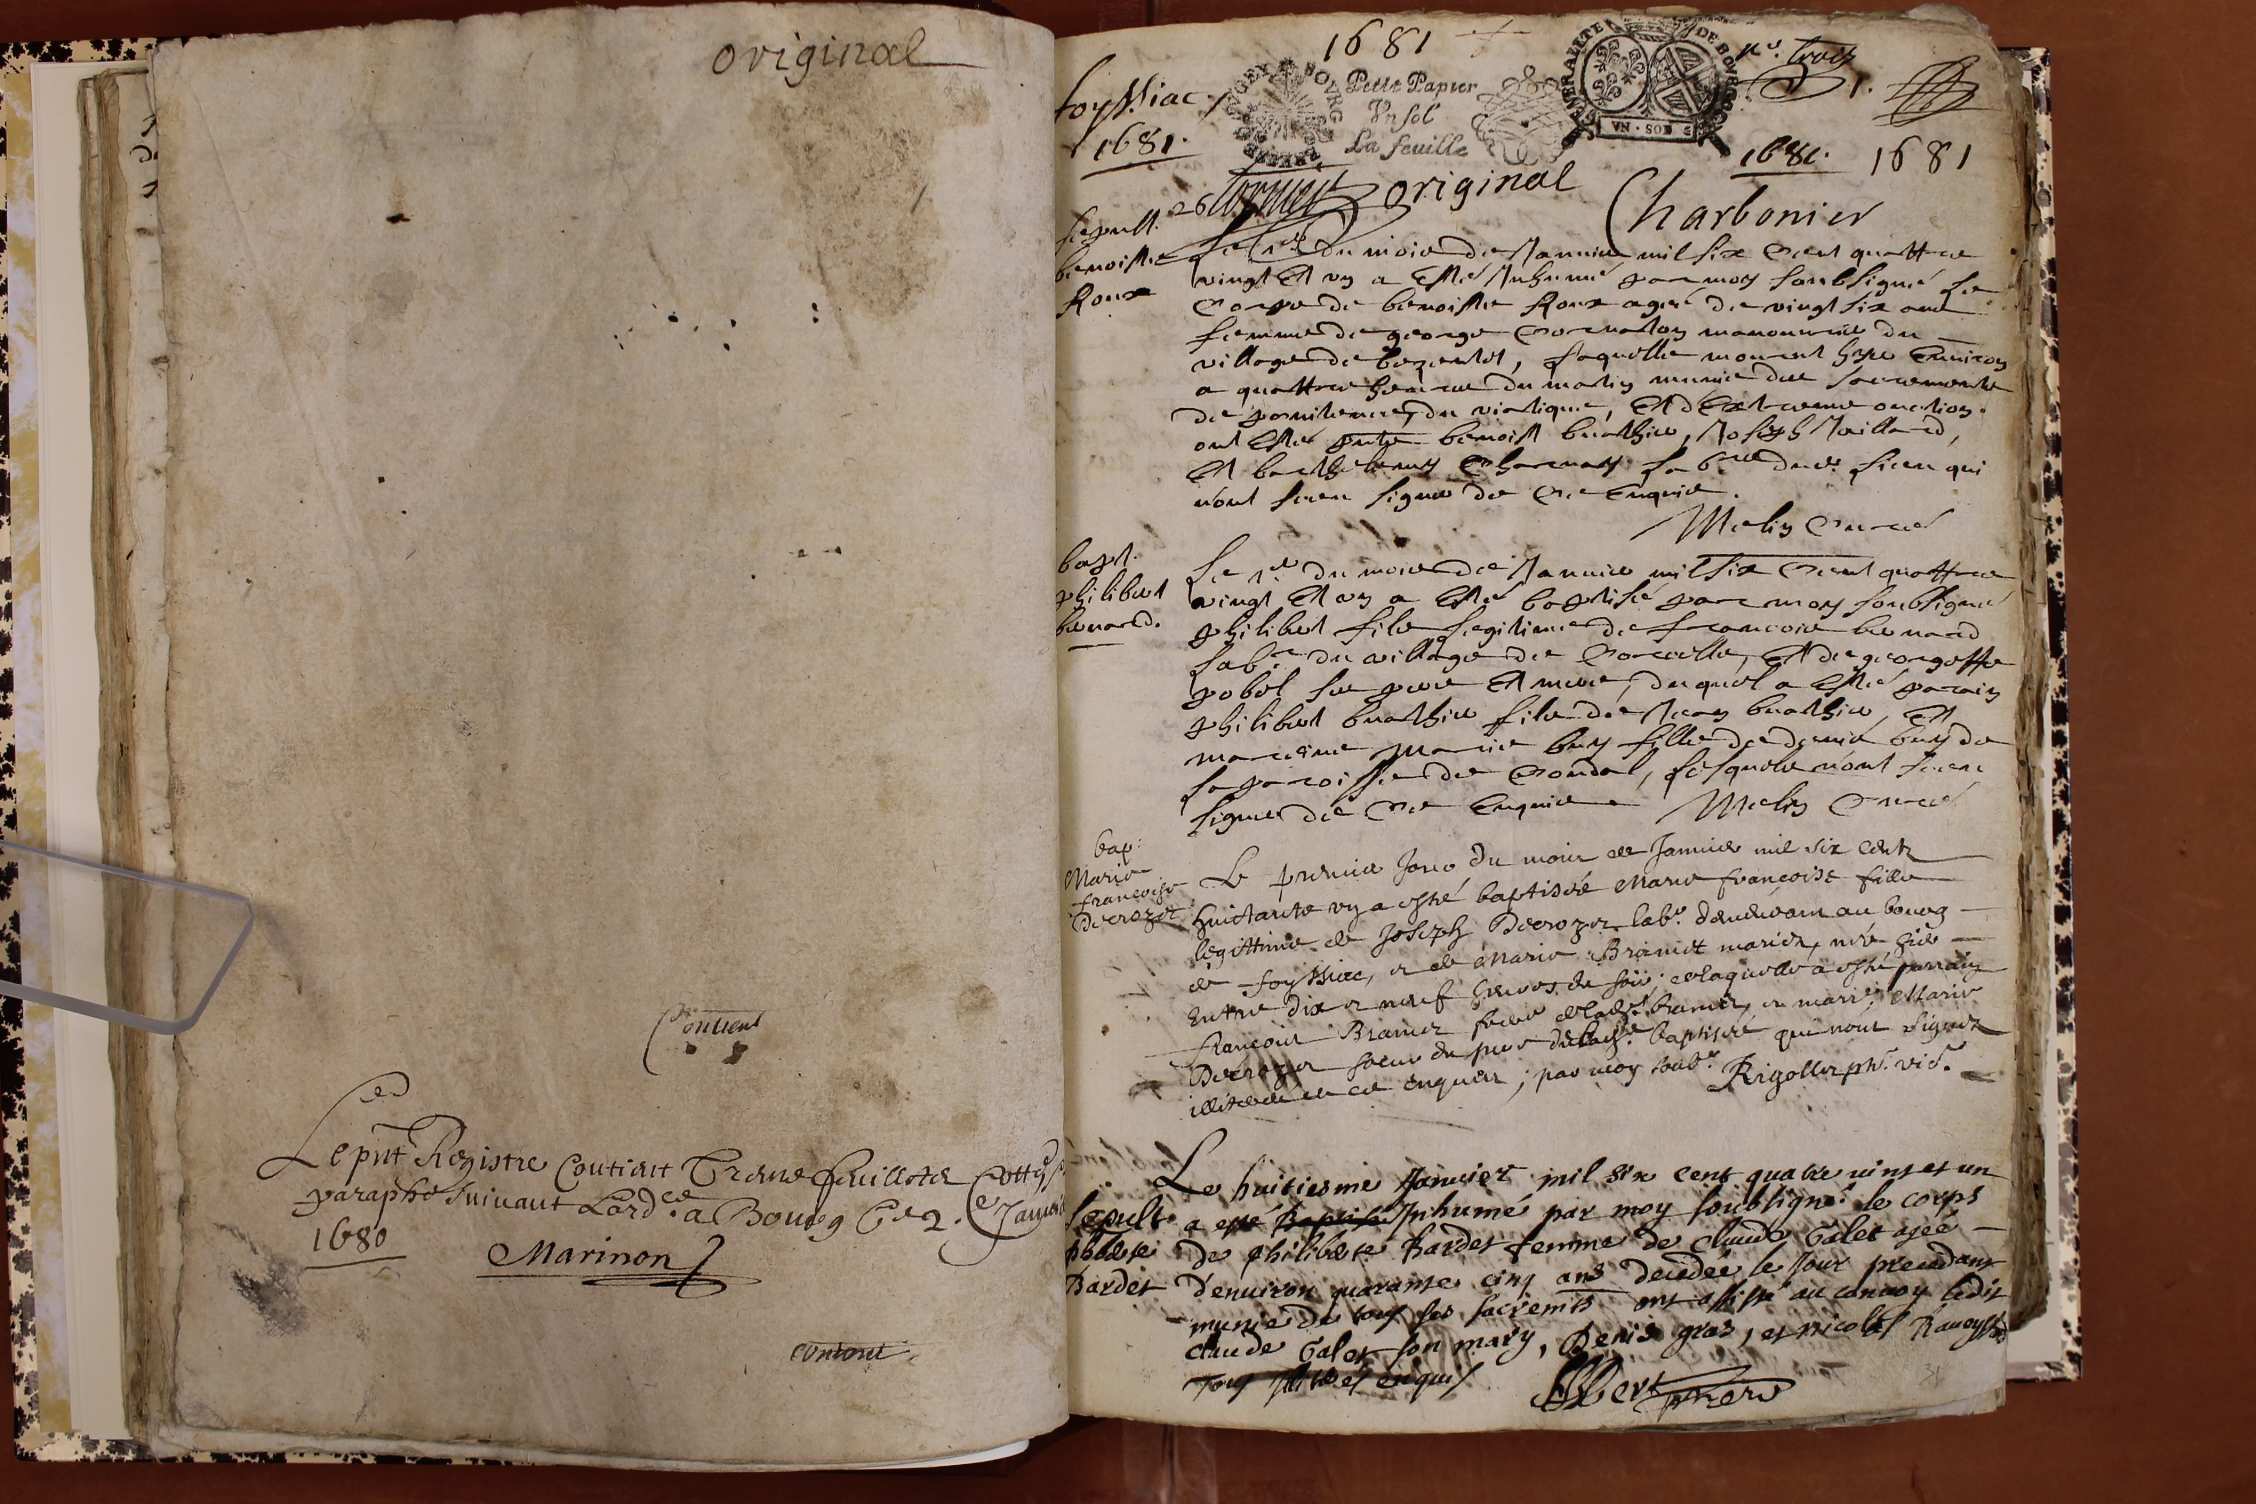 original
Contient
Led
Le pnt Registre Contient Trente feuillets Cottés
paraphé suivant Lordce a Bourg Ce 2e Janvier
1680
Marinon
contient
1681
foyssiac
1681.
Petit Papier
Vn sol
La feuille
GENERALITE DE BOVRGOGNE
VN · SOL
1681. 1681
original
Charbonier
Sepult.
benoiste
Roux
Le 1er du mois de Janvier mil six cent quattre
vingt Et vn a Esté Inhumé par moy soubsigné Le
Corps de benoiste Roux ageé de vingt six ans
femme de george Cornaton manouvrier du
village de , laquelle mourut hyer Environ
a quattre heures du matin munie des sacrements
de penitence, du viatique, Et d'Extreme onction.
ont Esté pnts benoist buathier, Joseph Maillard,
Et barthelemy Charnay labrs dud. lieu qui
n'ont sceu signer de ce Enquis.
Melin Curé
bapt.
philibert
benard.
Le 1er du mois de Janvier mil six cent quattre
vingt Et vn a Esté baptisé par moy soubsigné
philibert fils legitime de francois benard
labr. du village de Corcelle, Et de georgette
pobel ses pere Et mere, duquel a Esté parain
philibert buathier fils de Jean buathier, Et
maraine Marie buy fille de denis buy de
la paroisse de Condal, lesquels n'ont sceu
signer de ce Enquis Melin Curé
bap:
Marie
francoise
Decrozet
Le premier Jour du mois de Janvier mil six cents
huictante vn a esté baptiseé Marie francoise fille
legittime de Joseph Decrozet labr. demeurant au bourg
de foyssiac, et de Marie Branet mariez, née hier
entre dix et neuf heures du soir; de laquelle a esté parrain
francois Branet frere de lade. branet, et marre. Marie
Decrozet soeur du pere de lade. baptiseé qui n'ont signez
illiteres de ce enquis, par moy soubs. Rigollet ptr. vic.
Sepult
phberte
Bardet
Le huitiesme Janvier mil six cent quatre vint et un
a esté Baptisé Inhumé par moy soubsigné le corps
De philiberte Bardet femme de claude Galet ageé
D'environ quarante cinq ans decedeé le Jour precedant
munie de tous ses sacremts ont assisté au convoy ledit
claude Galet son mary, Denis gros, et nicolas
Tous illiteres enquis